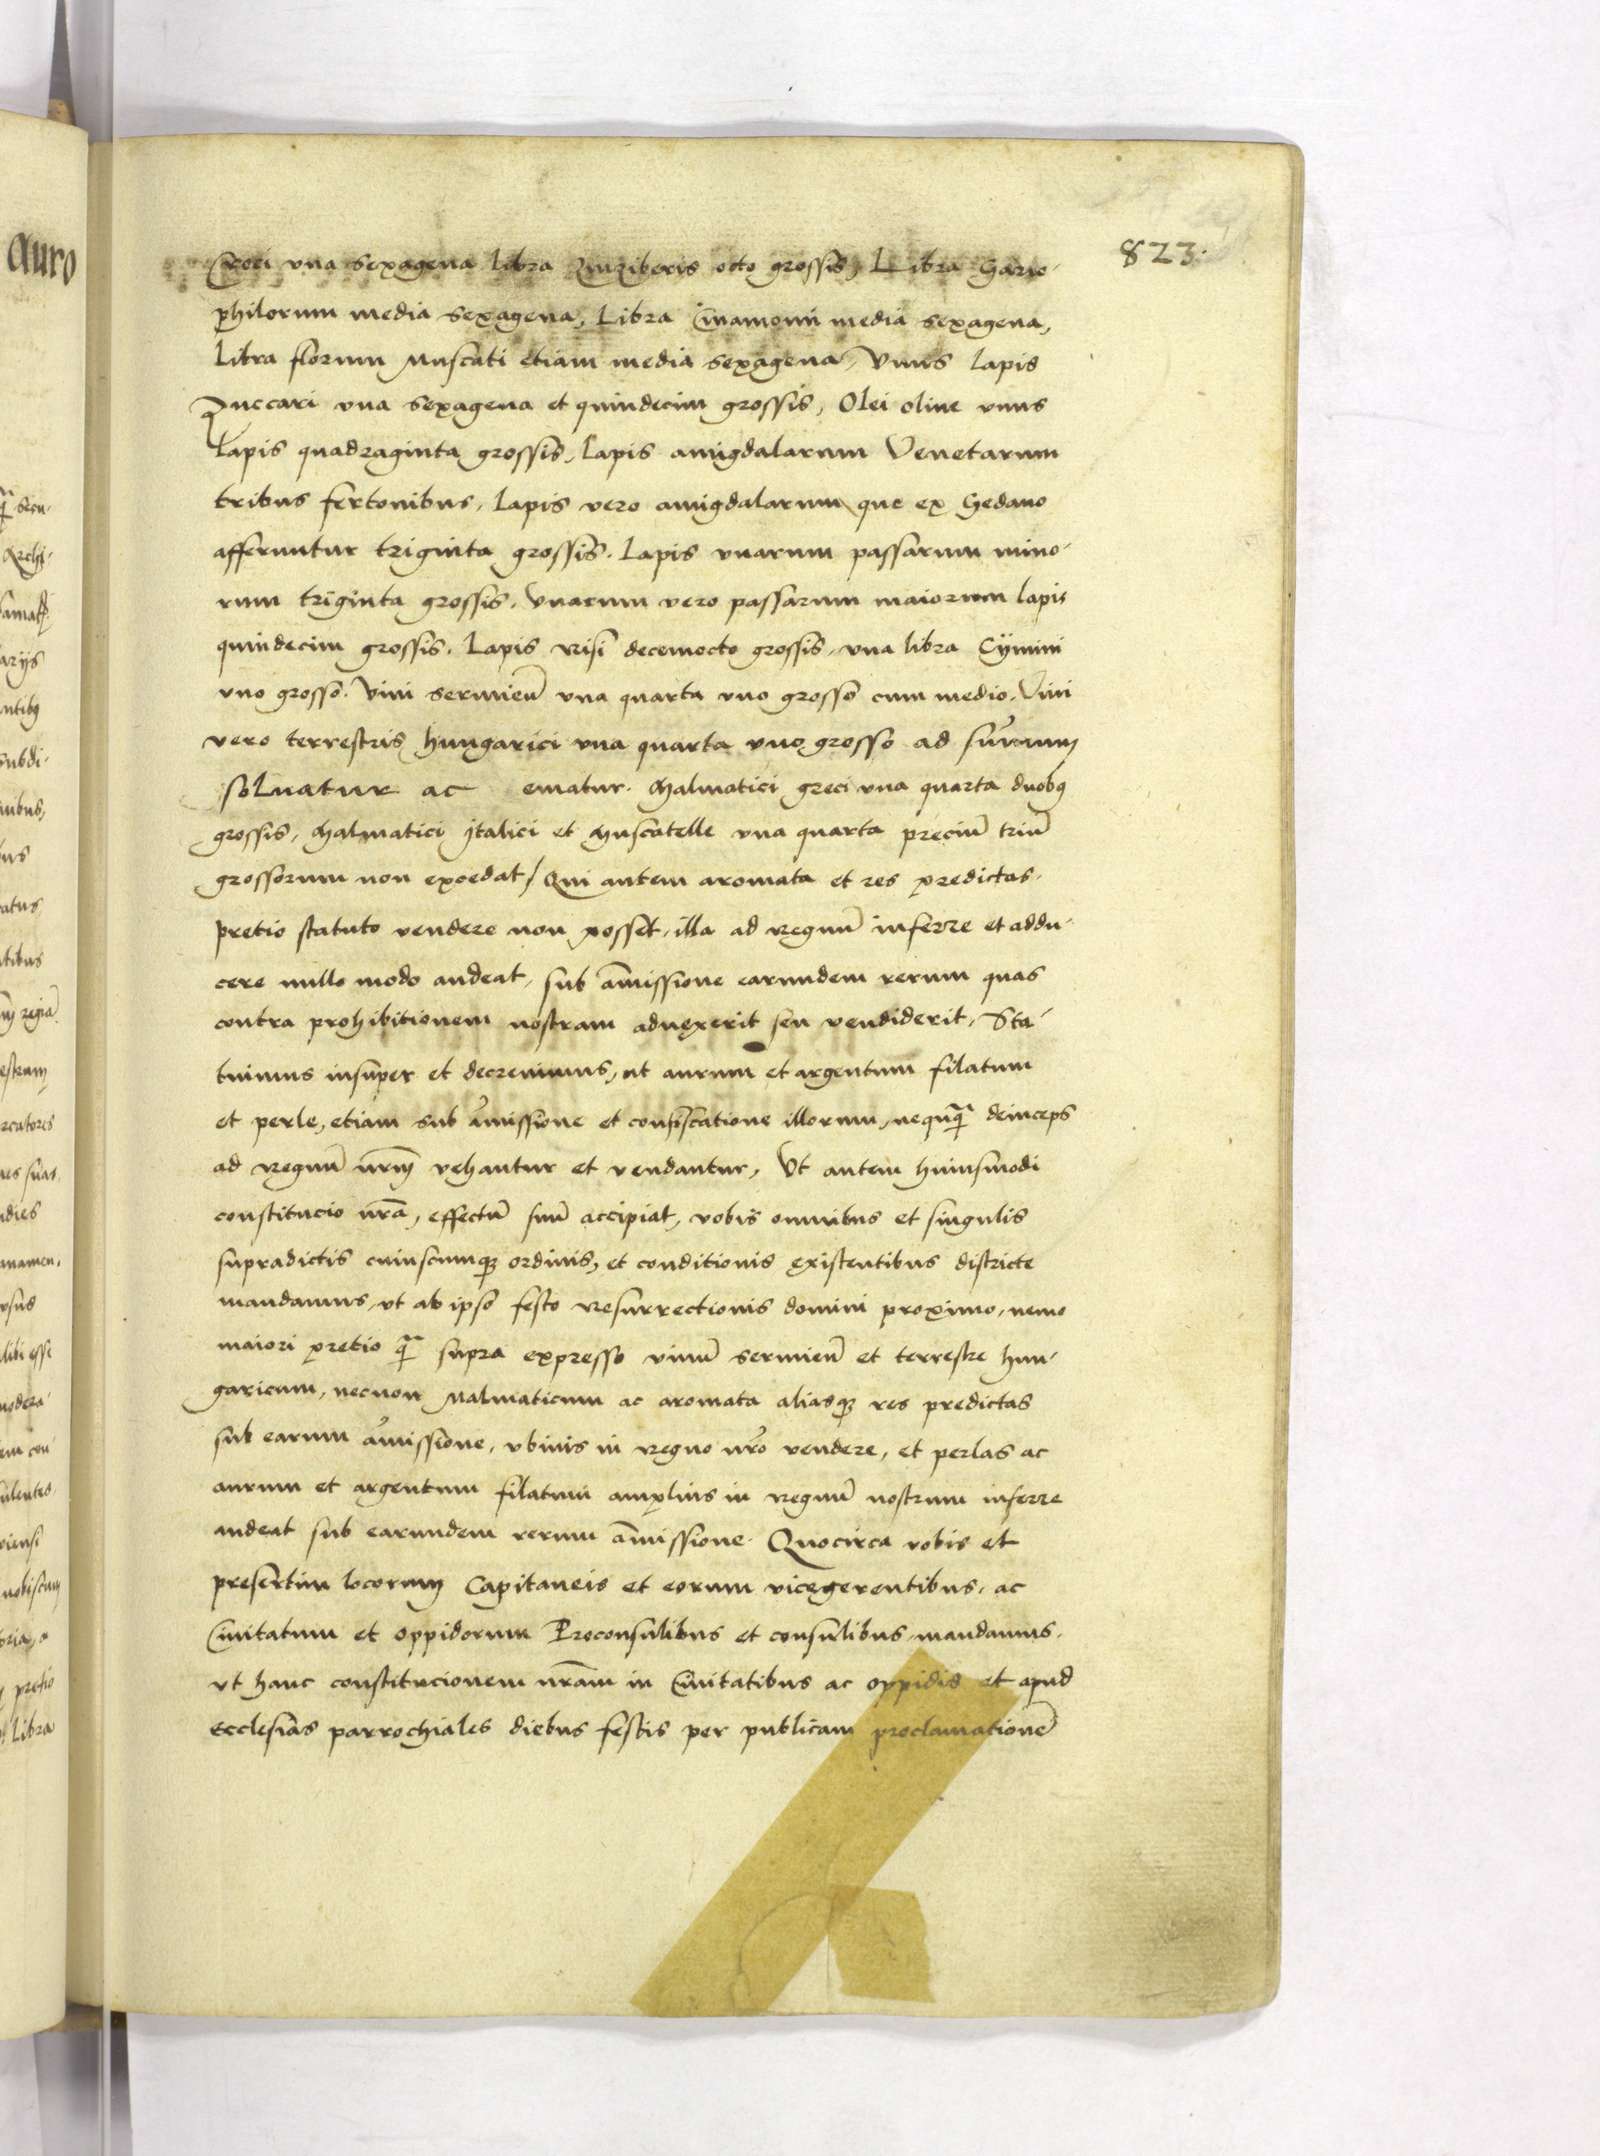 823.
Croci vna sexagena libra zinziberis octo grossis, Libra Gario-
philorum media sexagena, Libra Cinamomi media sexagena,
Libra florum Muscati etiam media sexagena, Vnus lapis
Zuccari vna sexagena et quindecim grossis, Olei oliue vnus
lapis quadraginta grossis, lapis amigdalarum Venetarum
tribus fertonibus, lapis vero amigdalarum que ex Gedano
afferuntur triginta grossis. Lapis vuarum passarum mino-
rum triginta grossis, vuarum vero passarum maiorum lapis
quindecim grossis. Lapis risi decemocto grossis, vna libra Cymini
vno grosso. Vini sermieñ vna quarta vno grosso cum medio. Vini
vero terrestris hungarici vna quarta vno grosso ad summum
soluatur ac ematur. Malmatici greci vna quarta duobꝫ
grossis, Malmatici Italici et Muscatelle vna quarta preciū triū
grossorum non excedat / Qui autem aromata et res predictas
pretio statuto vendere non posset, illa ad regnū inferre et addu-
cere nullo modo audeat, sub ammissione earundem rerum quas
contra prohibitionem nostram aduexerit seu vendiderit, Sta-
tuimus insuper et decreuimus, ut aurum et argentum filatum
et perle, etiam sub amissione et confiscatione illorum, nequꝗ̃ deinceps
ad regnū nr̃m vehantur et vendantur, Vt autem huiusmodi
constitucio nr̃a, effectū suū accipiat, vobis omnibus et singulis
supradictis cuiuscumqꝫ ordinis, et conditionis existentibus districte
mandamus, vt ab ipso festo resurrectionis domini proximo, nemo
maiori pretio ꝗ̃ supra expresso vinū sermieñ et terrestre hun-
garicum, necnon Malmaticum ac aromata aliasqꝫ res predictas
sub earum amissione, vbiuis in regno nr̃o vendere, et perlas ac
aurum et argentum filatum amplius in regnū nostrum inferre
audeat sub earundem rerum ammissione. Quocirca vobis et
presertim locorum Capitaneis et eorum vicegerentibus, ac
Ciuitatum et oppidorum Proconsulibus et consulibus, mandamus,
vt hanc constitucionem nr̃am in Ciuitatibus ac oppidis et apud
Ecclesias parrochiales diebus festis per publicam proclamationē
Auro